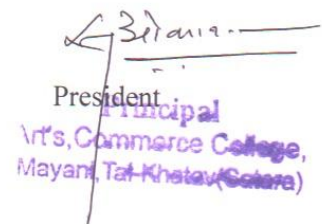 President
Principal
Art's, Commerce College,
Mayani, Tal-Khatav(Satara)